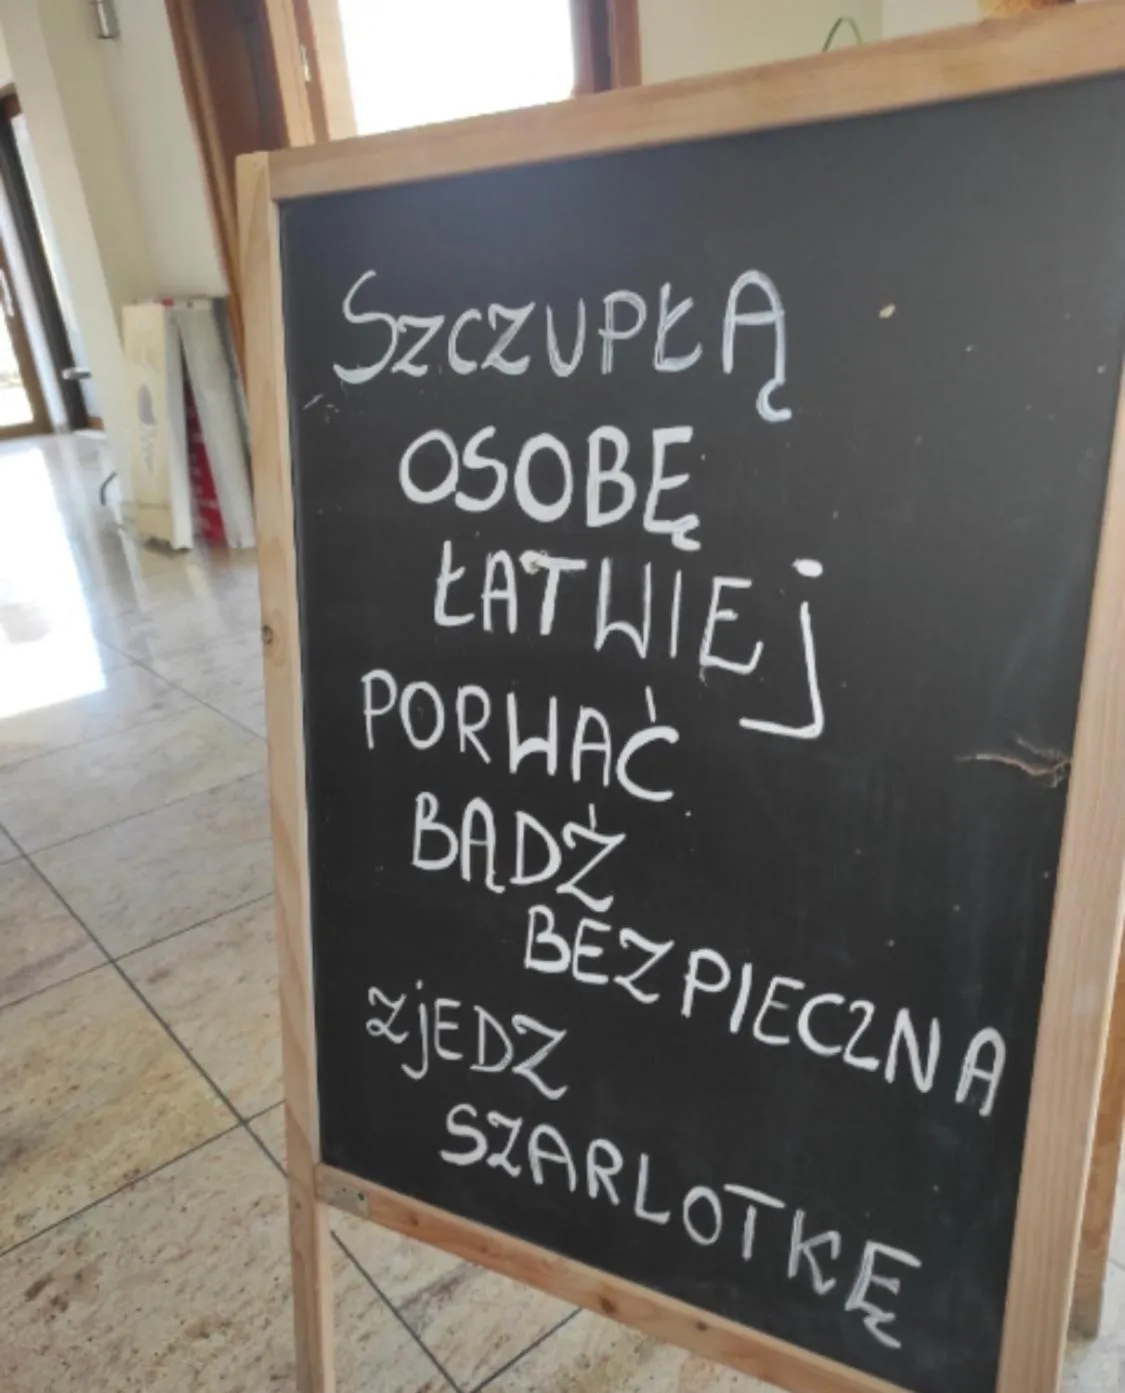 SZCZUPŁĄ
OSOBĘ
ŁATWIEj
PORWAĆ
BĄDŹ
BEZPIECZNA
ZjEDZ
SZARLOTKĘ